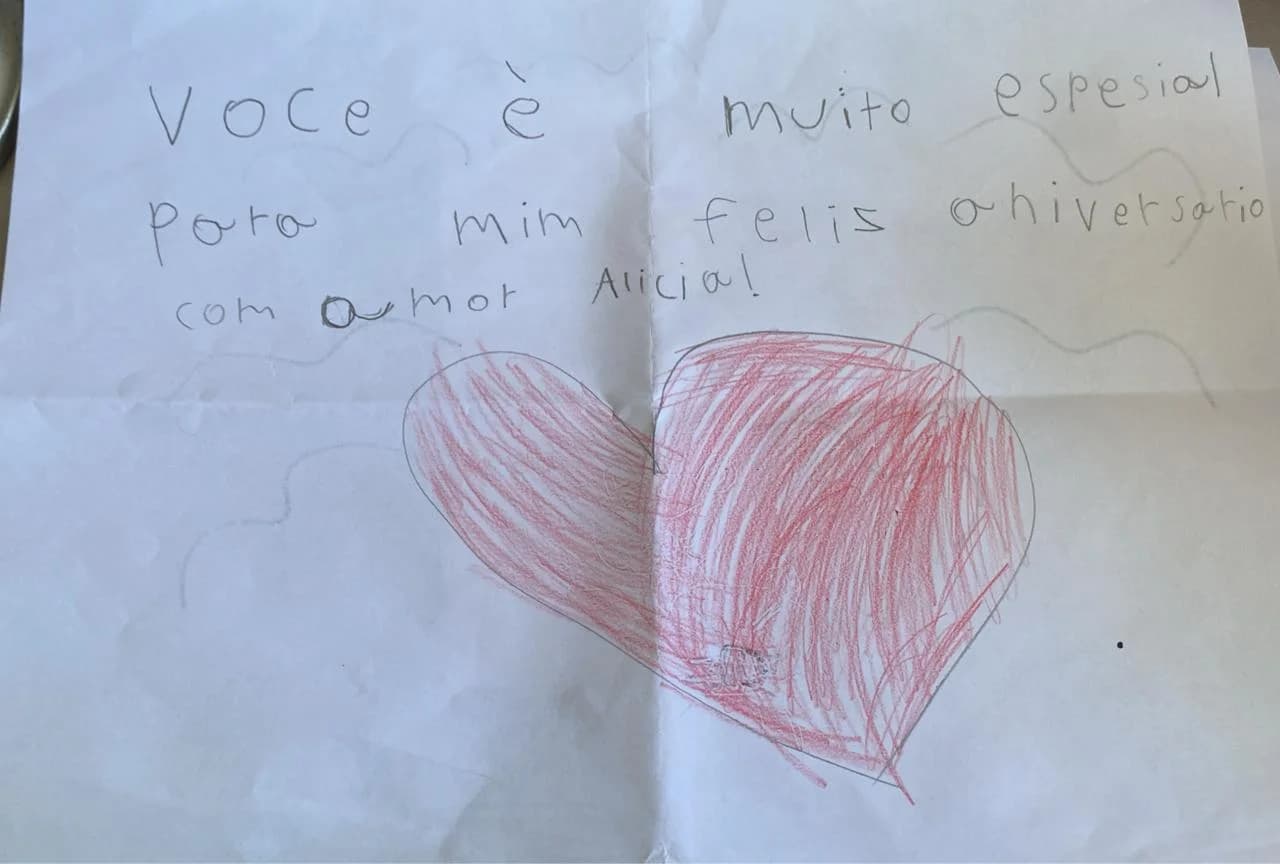 Voce è muito espesial
para mim felis aniversario
com amor Alicia!